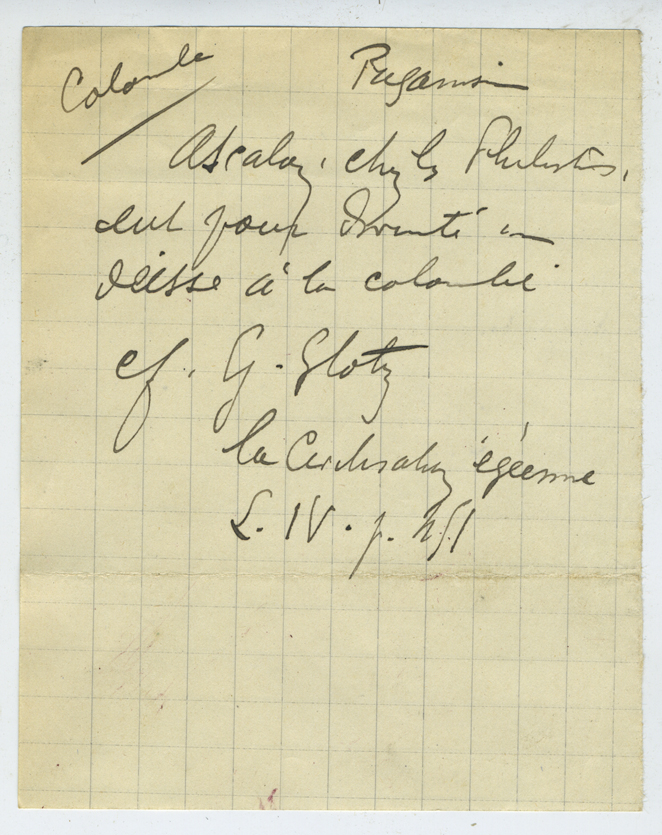 Colombe Paganisme
Ascalon, chez les Philistins,
eut pour Divinité une
déesse à la colombe
cf. G. Glotz
la Civilisation égéenne
L. IV. p.